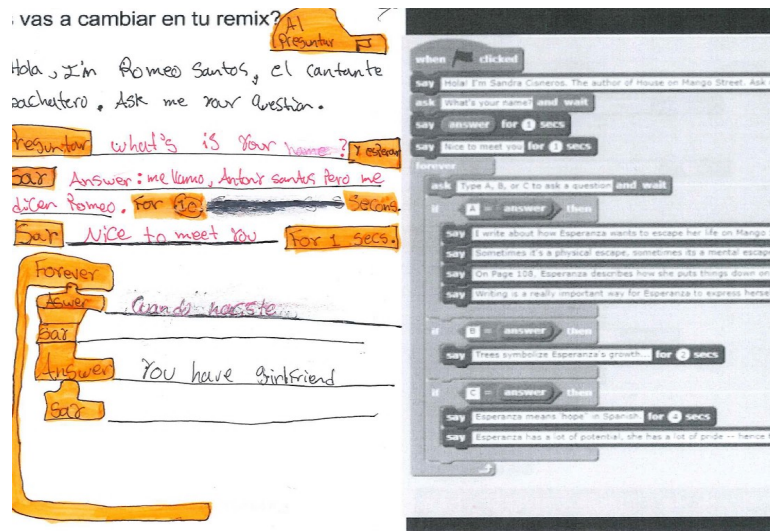 vas a cambiar en tu remix?
Al
Presuntar
Hola, I'm Romeo Santos, el cantante
bachatero. Ask me your Question.
Presuntar what's is your name? Y esperar
Sar Answer: me llamo, Antony santos Pero me
dicen Romeo. For 10 Secons.
Sar Nice to meet you For 1 secs.
Forever
Aswer
Sar
Answer You have girlfriend
Sar
when clicked
say Hola! I'm Sandra Cisneros. The author of House on Mango Street. Ask
ask What's your name? and wait
say answer for 1 secs
say Nice to meet you for 1 secs
forever
ask Type A, B, or C to ask a question and wait
if A = answer then
say I write about how Esperanza wants to escape her life on Mango
say Sometimes it's a physical escape, sometimes its a mental escape
say On Page 108, Esperanza describes how she puts things down on
say Writing is a really important way for Esperanza to express herse
if B = answer then
say Trees symbolize Esperanza's growth... for 2 secs
if C = answer then
say Esperanza means "hope" in Spanish. for 4 secs
say Esperanza has a lot of potential, she has a lot of pride -- hence